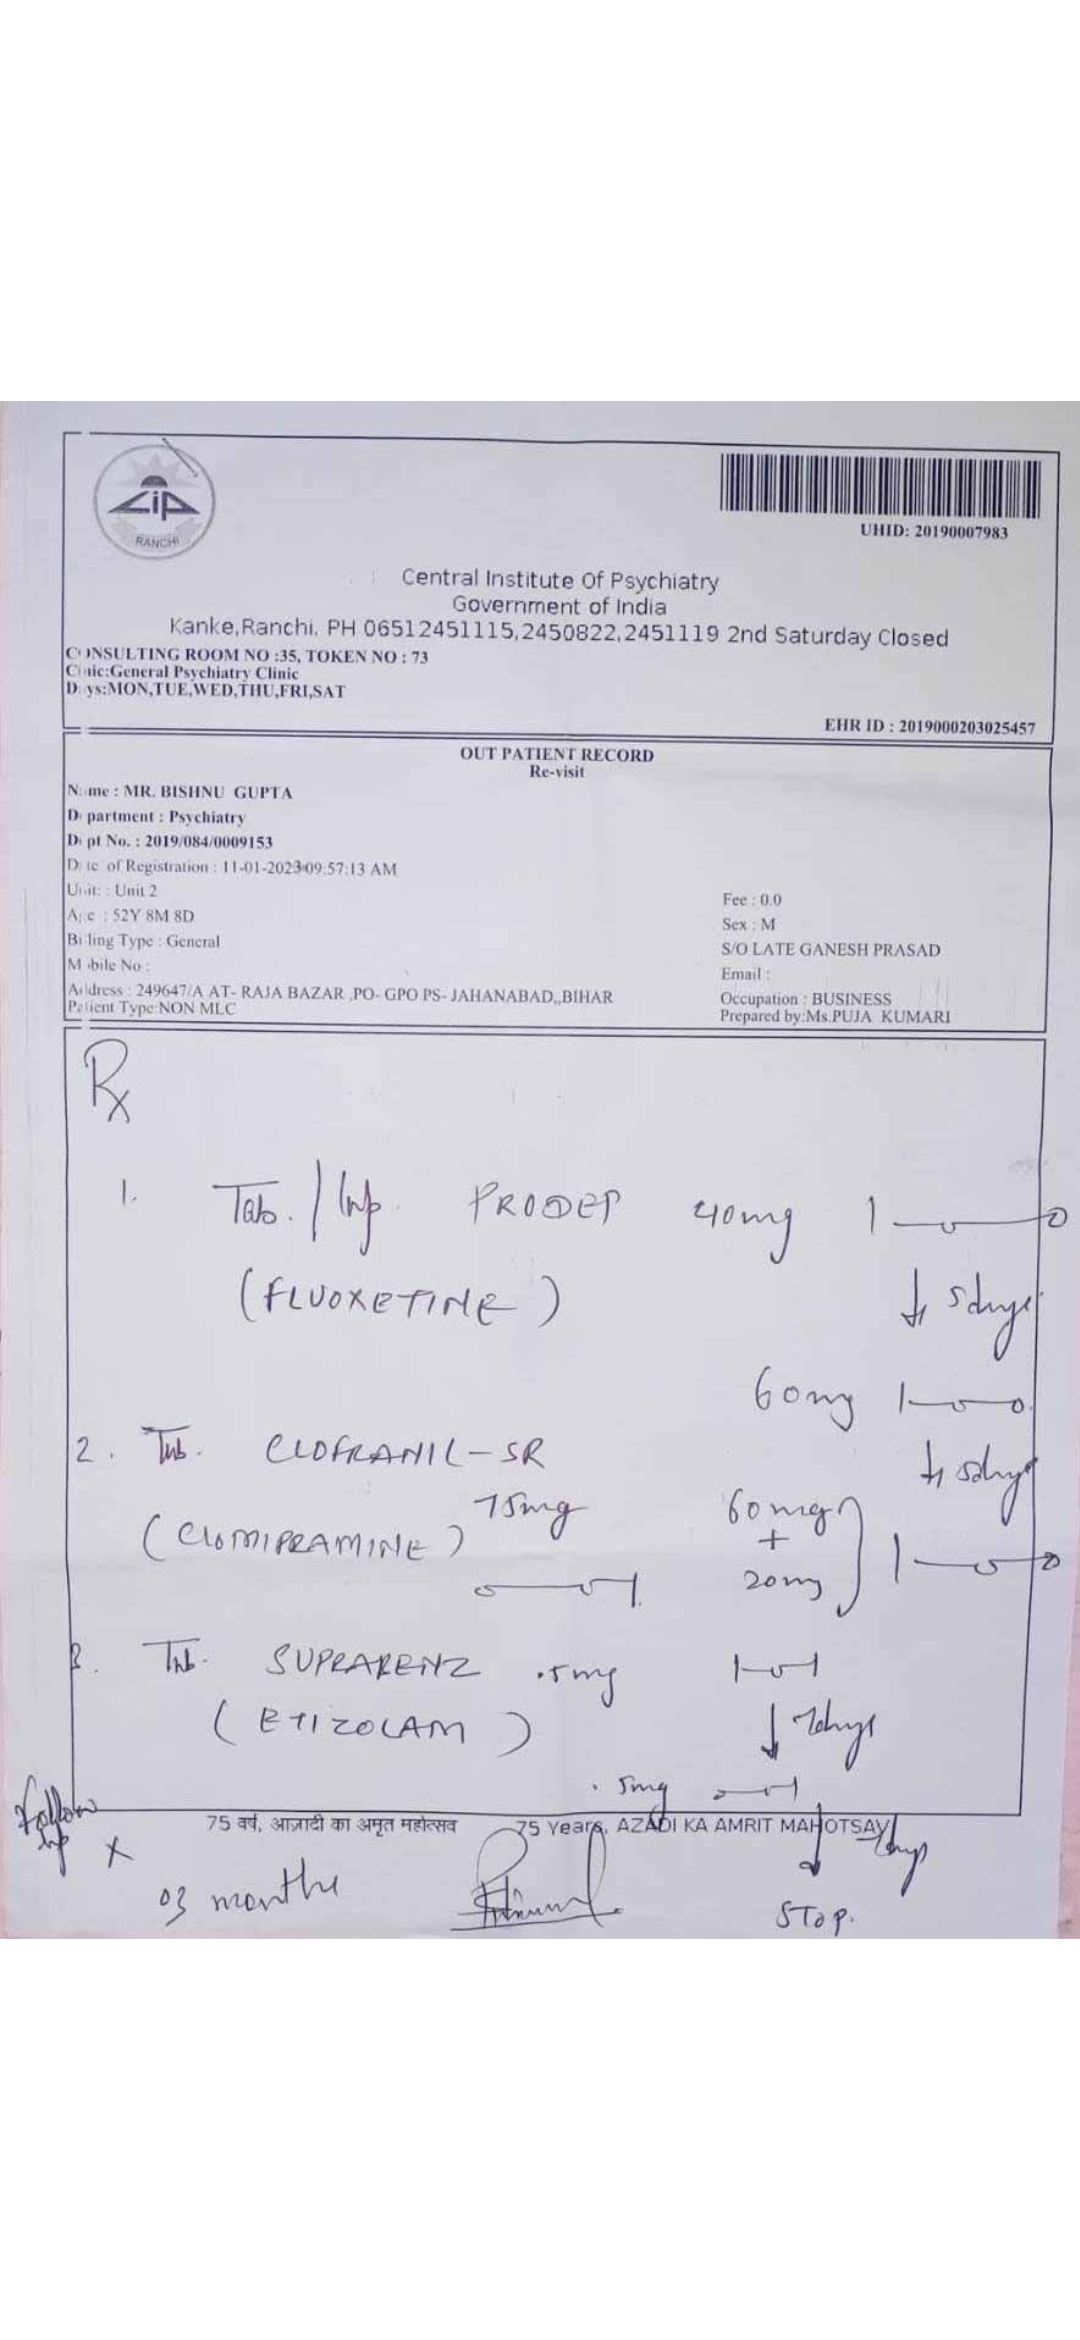 CIP
RANCHI
UHID: 20190007983
Central Institute Of Psychiatry
Government of India
Kanke,Ranchi. PH 06512451115,2450822,2451119 2nd Saturday Closed
CONSULTING ROOM NO :35, TOKEN NO : 73
Clinic:General Psychiatry Clinic
Days:MON,TUE,WED,THU,FRI,SAT
EHR ID : 2019000203025457
OUT PATIENT RECORD
Re-visit
Name : MR. BISHNU GUPTA
Department : Psychiatry
Dept No. : 2019/084/0009153
Date of Registration : 11-01-2023 09:57:13 AM
Unit: : Unit 2
Fee : 0.0
Age : 52Y 8M 8D
Sex : M
Billing Type : General
S/O LATE GANESH PRASAD
Mobile No :
Email :
Address : 249647/A AT- RAJA BAZAR ,PO- GPO PS- JAHANABAD,,BIHAR
Occupation : BUSINESS
Patient Type:NON MLC
Prepared by:Ms.PUJA KUMARI
Rx
1. Tab. / Cap. PRODEP 40mg 1—0—0
(FLUOXETINE) ↓ 5days
60mg 1—0—0
2. Tab. CLOFRANIL-SR ↓ 5days
75mg 60mg
(CLOMIPRAMINE) + 1—0—0
0—0—1 20mg
3. Tab. SUPRARENZ .5mg 1-0-1
(ETIZOLAM) ↓ 7days
.5mg 0-0-1
75 वर्ष, आज़ादी का अमृत महोत्सव 75 Years, AZADI KA AMRIT MAHOTSAV
Follow up x ↓ 7days
03 months STOP.